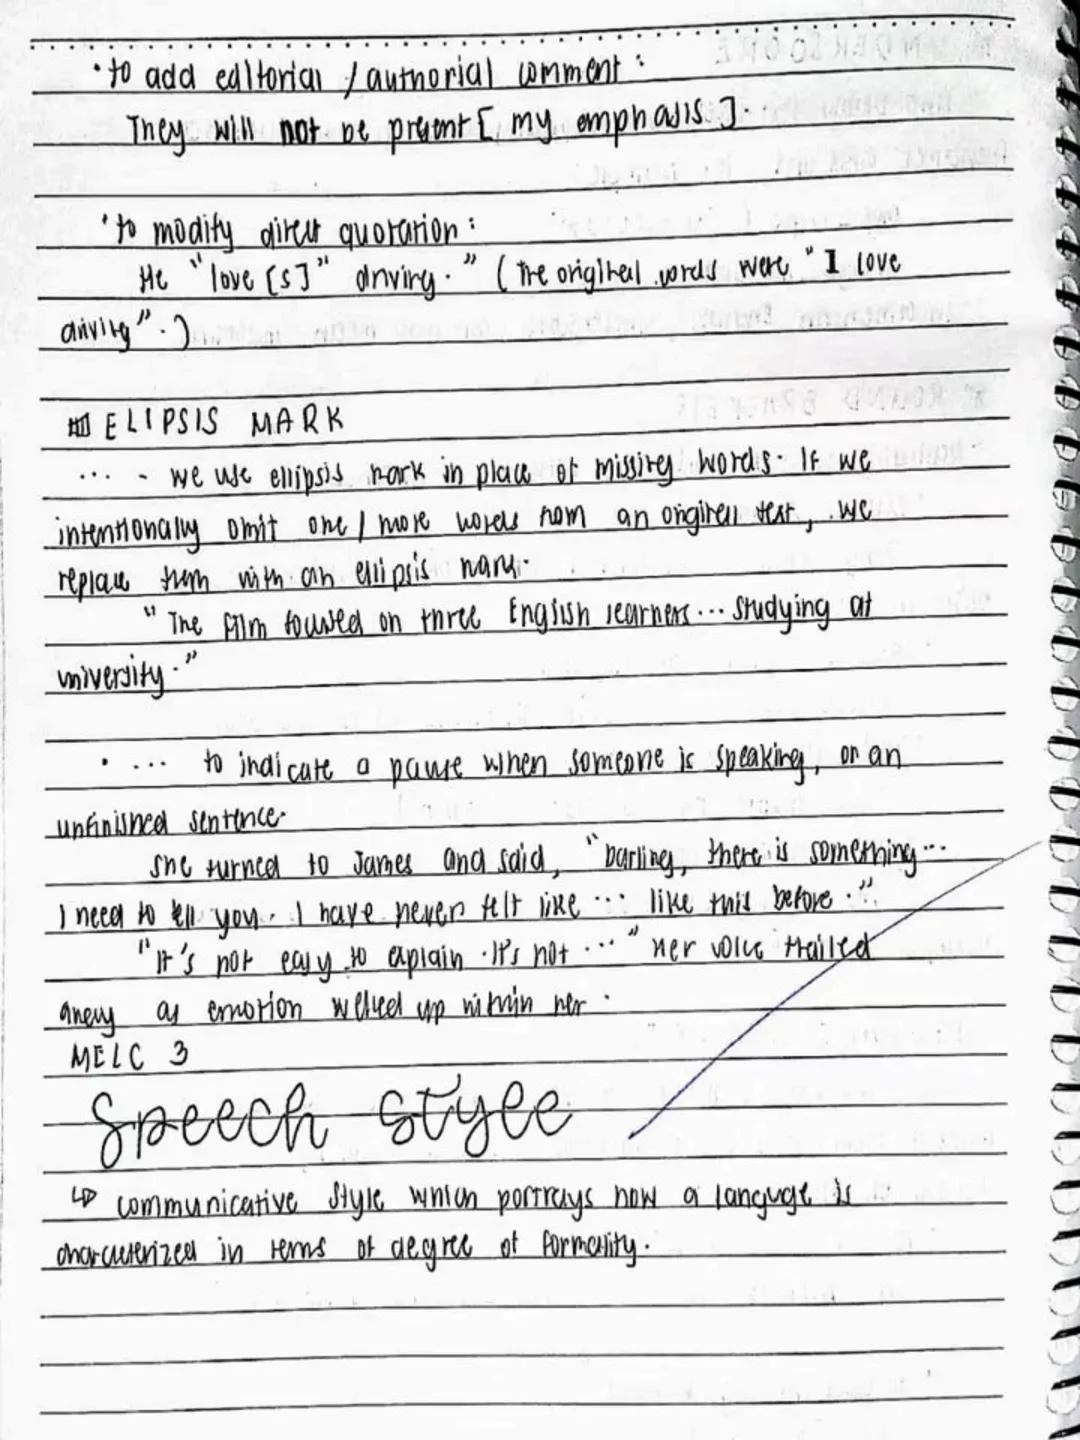 • to add editorial / authorial comment :
They will not be present [ my emphasis ].
• to modify direct quotation :
He "love [s]" driving." ( The original words were "I love
driving". )
ELIPSIS MARK
... - we use ellipsis mark in place of missing words. If we
intentionally omit one / more words from an original text, we
replace them with an ellipsis mark.
"The film focused on three English learners ... studying at
university."
• ... to indicate a pause when someone is speaking, or an
unfinished sentence.
She turned to James and said, "Darling, there is something ...
I need to tell you. I have never felt like ... like this before."
"It's not easy to explain. It's not ..." Her voice trailed
away as emotion welled up within her.
MELC 3
Speech Style
↳ communicative style which portrays how a languge is
characterized in terms of degree of formality.